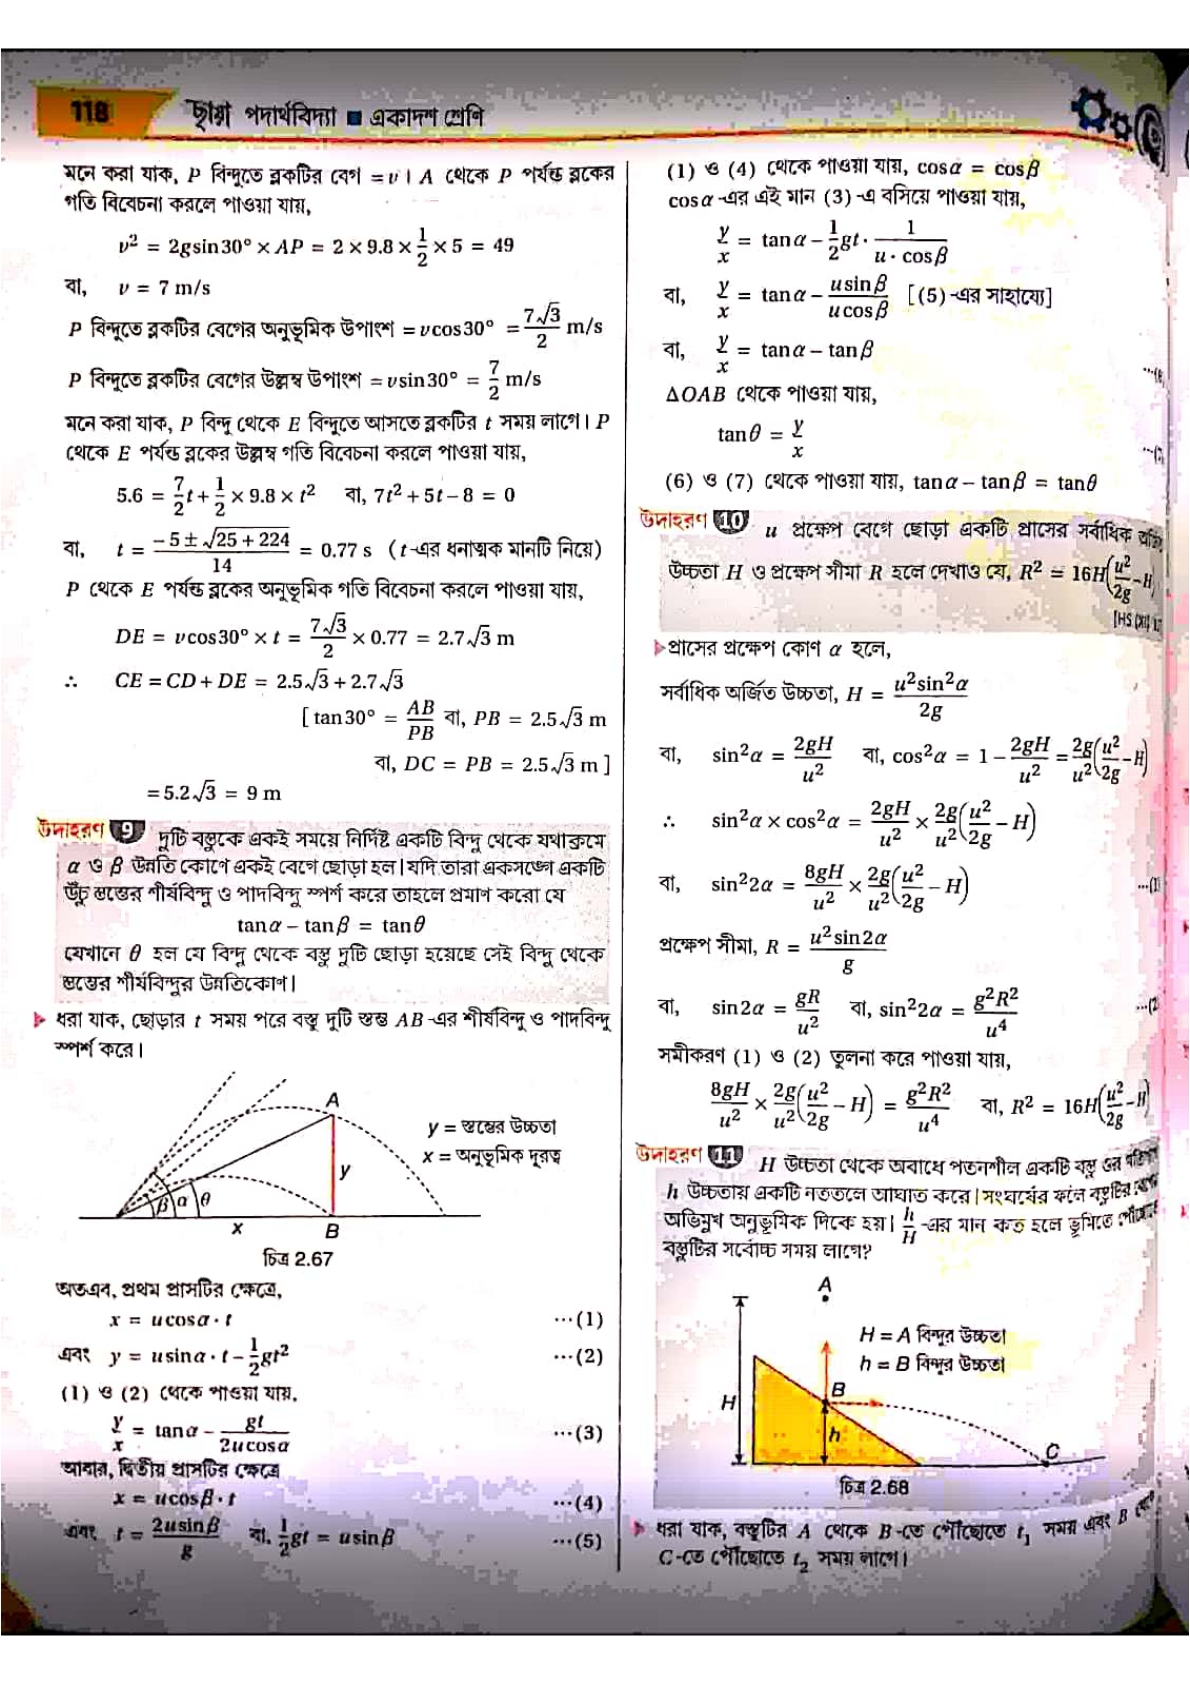 118 ছায়া পদার্থবিদ্যা ■ একাদশ শ্রেণি
মনে করা যাক, P বিন্দুতে ব্লকটির বেগ = v। A থেকে P পর্যন্ত ব্লকের
গতি বিবেচনা করলে পাওয়া যায়,
v² = 2gsin30° × AP = 2 × 9.8 × 1/2 × 5 = 49
বা, v = 7 m/s
P বিন্দুতে ব্লকটির বেগের অনুভূমিক উপাংশ = vcos30° = 7√3/2 m/s
P বিন্দুতে ব্লকটির বেগের উল্লম্ব উপাংশ = vsin30° = 7/2 m/s
মনে করা যাক, P বিন্দু থেকে E বিন্দুতে আসতে ব্লকটির t সময় লাগে। P
থেকে E পর্যন্ত ব্লকের উল্লম্ব গতি বিবেচনা করলে পাওয়া যায়,
5.6 = 7/2 t + 1/2 × 9.8 × t² বা, 7t² + 5t – 8 = 0
বা, t = (–5 ± √(25 + 224))/14 = 0.77 s (t-এর ধনাত্মক মানটি নিয়ে)
P থেকে E পর্যন্ত ব্লকের অনুভূমিক গতি বিবেচনা করলে পাওয়া যায়,
DE = vcos30° × t = 7√3/2 × 0.77 = 2.7√3 m
∴ CE = CD + DE = 2.5√3 + 2.7√3
[ tan30° = AB/PB বা, PB = 2.5√3 m
বা, DC = PB = 2.5√3 m ]
= 5.2√3 = 9 m
উদাহরণ 9 দুটি বস্তুকে একই সময়ে নির্দিষ্ট একটি বিন্দু থেকে যথাক্রমে
α ও β উন্নতি কোণে একই বেগে ছোড়া হল। যদি তারা একসঙ্গে একটি
উঁচু স্তম্ভের শীর্ষবিন্দু ও পাদবিন্দু স্পর্শ করে তাহলে প্রমাণ করো যে
tanα – tanβ = tanθ
যেখানে θ হল যে বিন্দু থেকে বস্তু দুটি ছোড়া হয়েছে সেই বিন্দু থেকে
স্তম্ভের শীর্ষবিন্দুর উন্নতিকোণ।
ধরা যাক, ছোড়ার t সময় পরে বস্তু দুটি স্তম্ভ AB-এর শীর্ষবিন্দু ও পাদবিন্দু
স্পর্শ করে।
A
y = স্তম্ভের উচ্চতা
x = অনুভূমিক দূরত্ব
y
β α θ
x B
চিত্র 2.67
অতএব, প্রথম প্রাসটির ক্ষেত্রে,
x = ucosα · t ···(1)
এবং y = usinα · t – 1/2 gt² ···(2)
(1) ও (2) থেকে পাওয়া যায়,
y/x = tanα – gt/2ucosα ···(3)
আবার, দ্বিতীয় প্রাসটির ক্ষেত্রে
x = ucosβ · t ···(4)
এবং t = 2usinβ/g বা, 1/2 gt = usinβ ···(5)
(1) ও (4) থেকে পাওয়া যায়, cosα = cosβ
cosα-এর এই মান (3)-এ বসিয়ে পাওয়া যায়,
y/x = tanα – 1/2 gt · 1/(u · cosβ)
বা, y/x = tanα – usinβ/ucosβ [(5)-এর সাহায্যে]
বা, y/x = tanα – tanβ
ΔOAB থেকে পাওয়া যায়,
tanθ = y/x
(6) ও (7) থেকে পাওয়া যায়, tanα – tanβ = tanθ
উদাহরণ 10 u প্রক্ষেপ বেগে ছোড়া একটি প্রাসের সর্বাধিক
উচ্চতা H ও প্রক্ষেপ সীমা R হলে দেখাও যে, R² = 16H(u²/2g – H)
[HS (XI)
প্রাসের প্রক্ষেপ কোণ α হলে,
সর্বাধিক অর্জিত উচ্চতা, H = u²sin²α/2g
বা, sin²α = 2gH/u² বা, cos²α = 1 – 2gH/u² = 2g/u²(u²/2g – H)
∴ sin²α × cos²α = 2gH/u² × 2g/u²(u²/2g – H)
বা, sin²2α = 8gH/u² × 2g/u²(u²/2g – H) ···(1)
প্রক্ষেপ সীমা, R = u²sin2α/g
বা, sin2α = gR/u² বা, sin²2α = g²R²/u⁴ ···(2
সমীকরণ (1) ও (2) তুলনা করে পাওয়া যায়,
8gH/u² × 2g/u²(u²/2g – H) = g²R²/u⁴ বা, R² = 16H(u²/2g – H)
উদাহরণ 11 H উচ্চতা থেকে অবাধে পতনশীল একটি বস্তু ওর
h উচ্চতায় একটি নততলে আঘাত করে। সংঘর্ষের ফলে বস্তুটির
অভিমুখ অনুভূমিক দিকে হয়। h/H-এর মান কত হলে ভূমিতে
বস্তুটির সর্বোচ্চ সময় লাগে?
A
H = A বিন্দুর উচ্চতা
h = B বিন্দুর উচ্চতা
B
H
h
C
চিত্র 2.68
ধরা যাক, বস্তুটির A থেকে B-তে পৌঁছোতে t₁ সময় এবং B
C-তে পৌঁছোতে t₂ সময় লাগে।